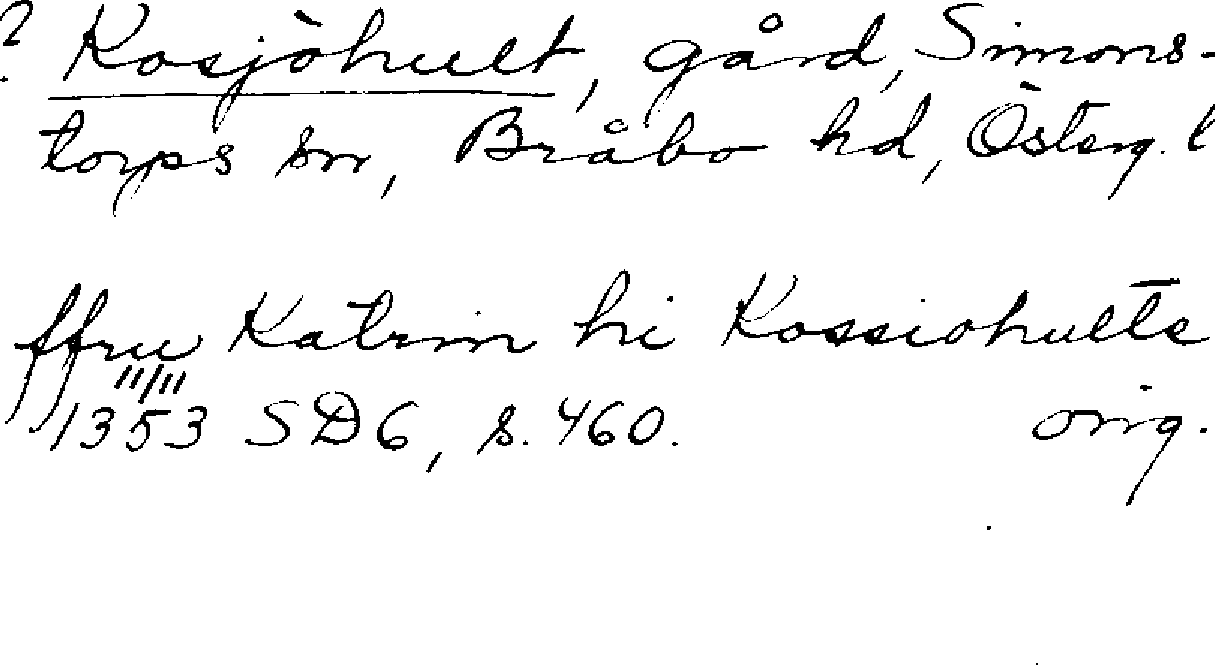 ? Kosjöhult, gård, Simons-
torps sn, Bråbo hd, Österg. l
ffru Katrin hi Kossiohults
11/11
1353 SD6, s. 460. orig.